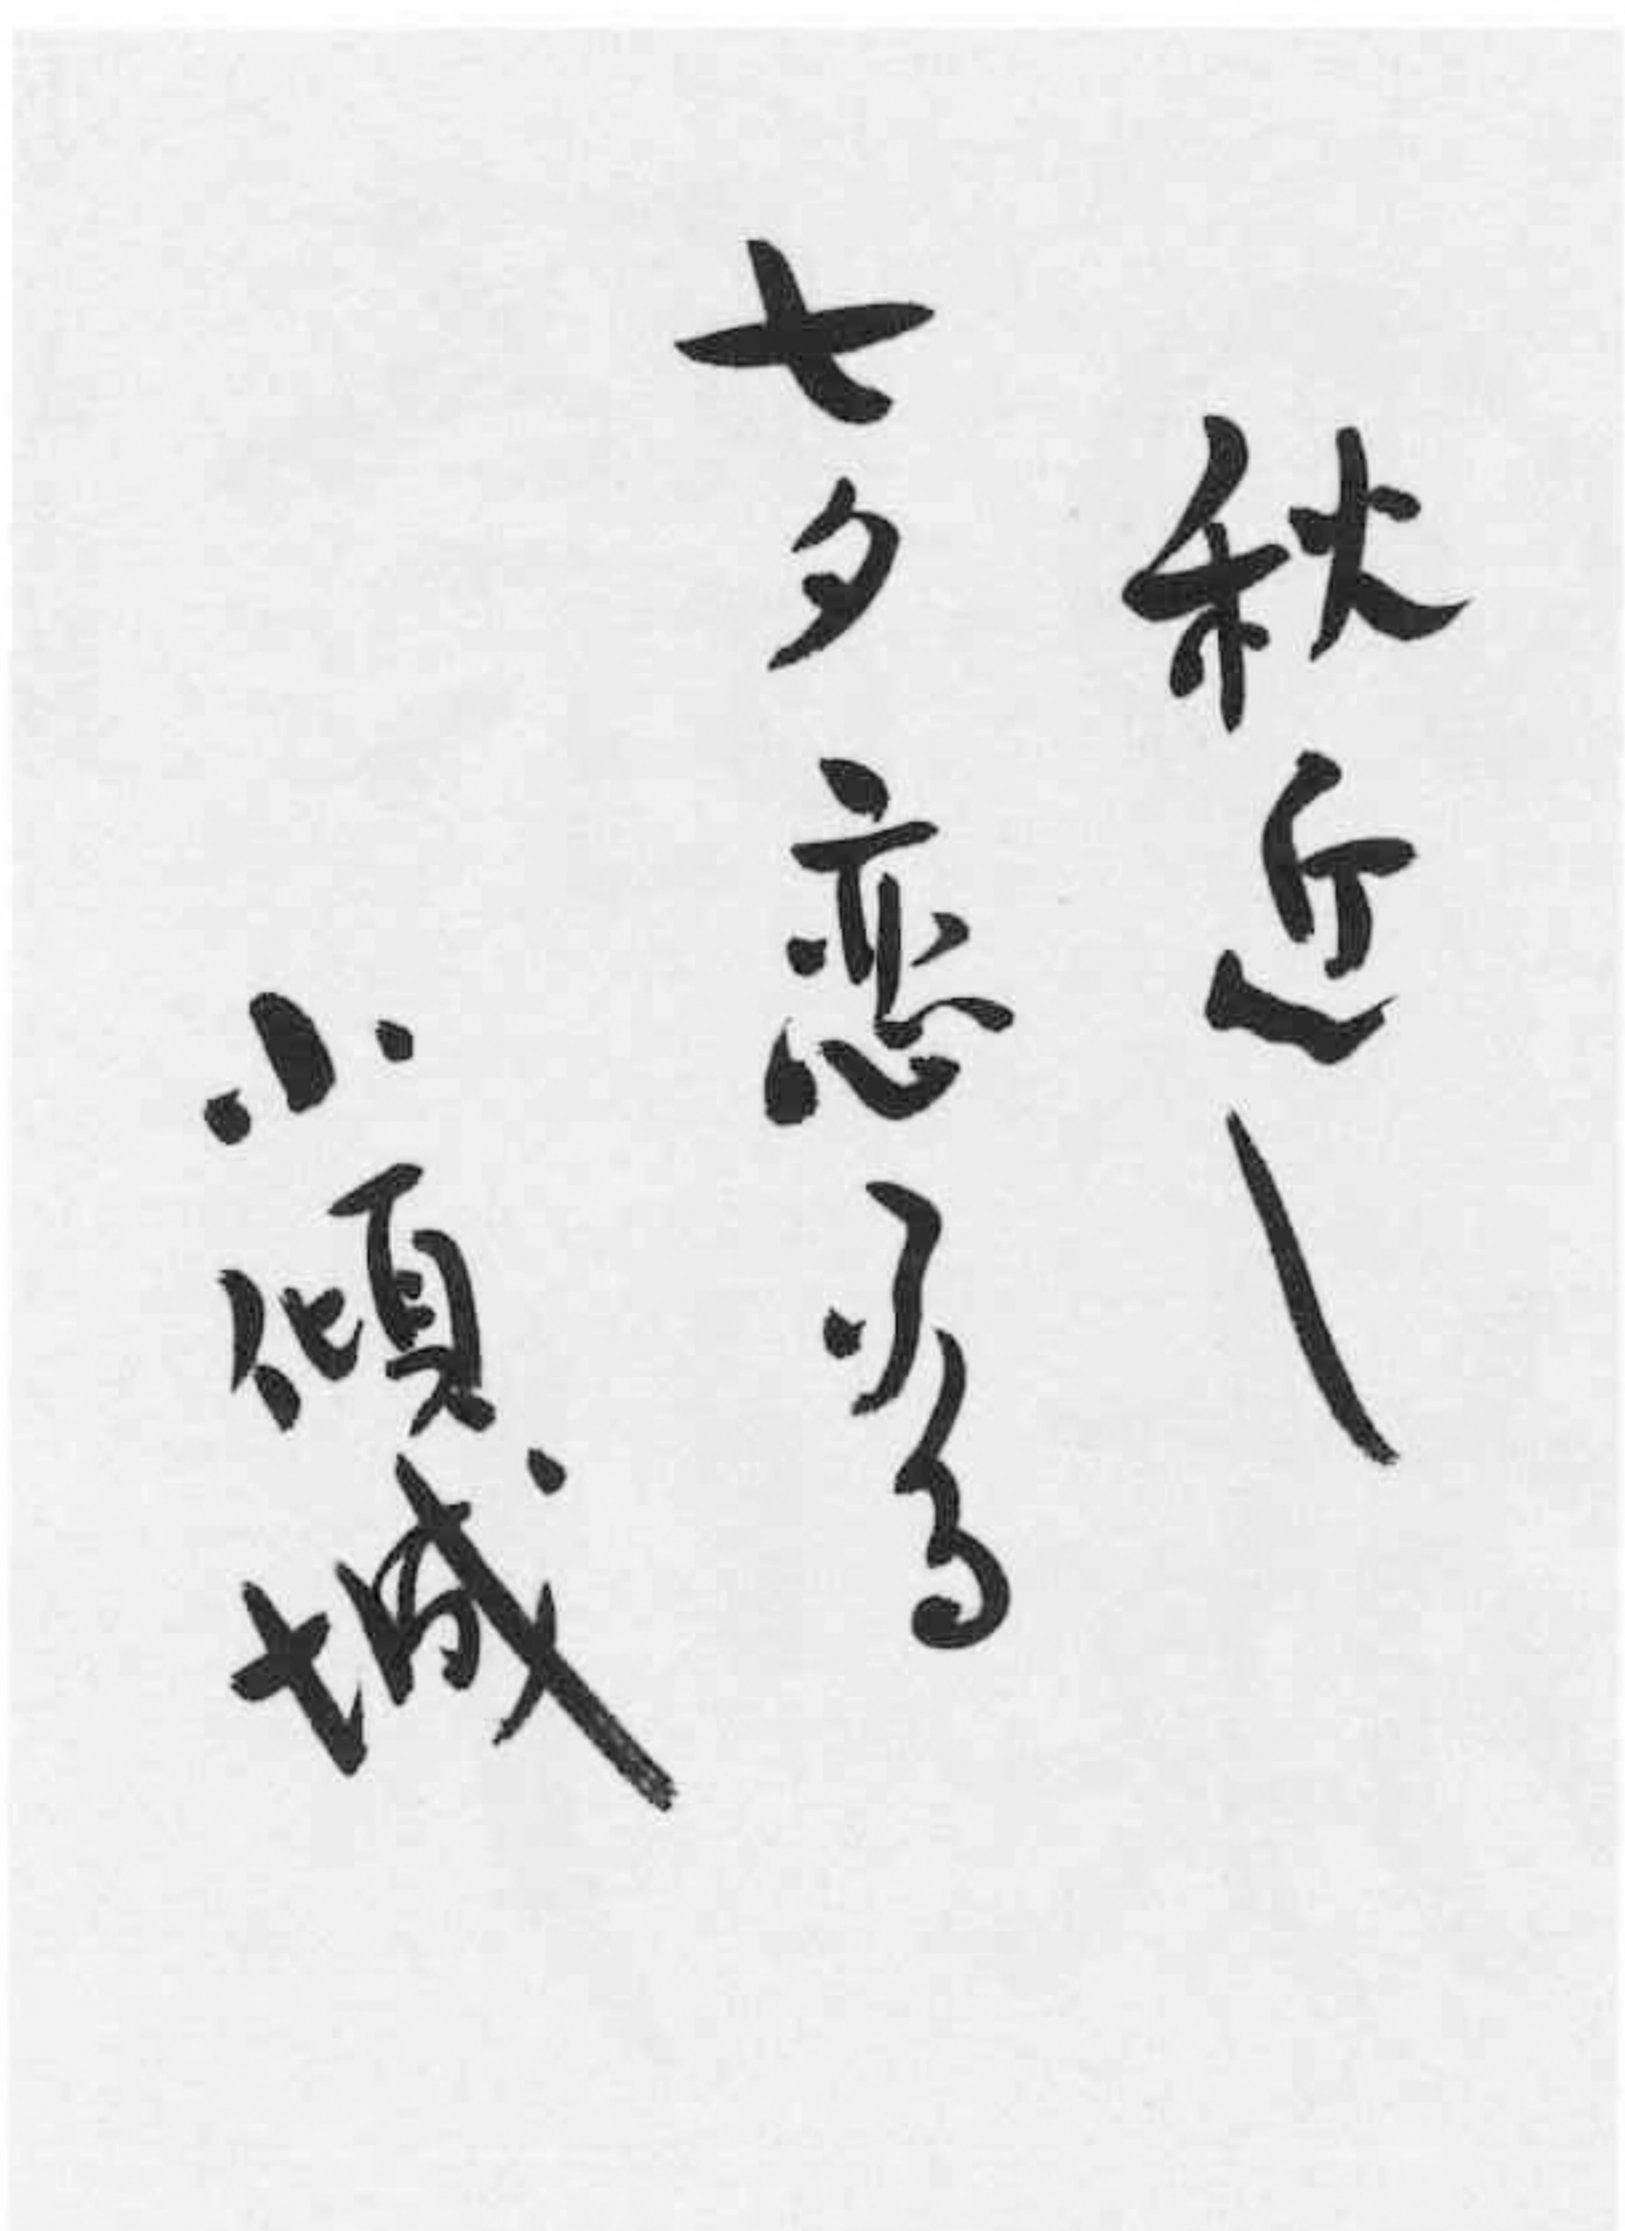 秋近し
七夕恋ふる
小傾城